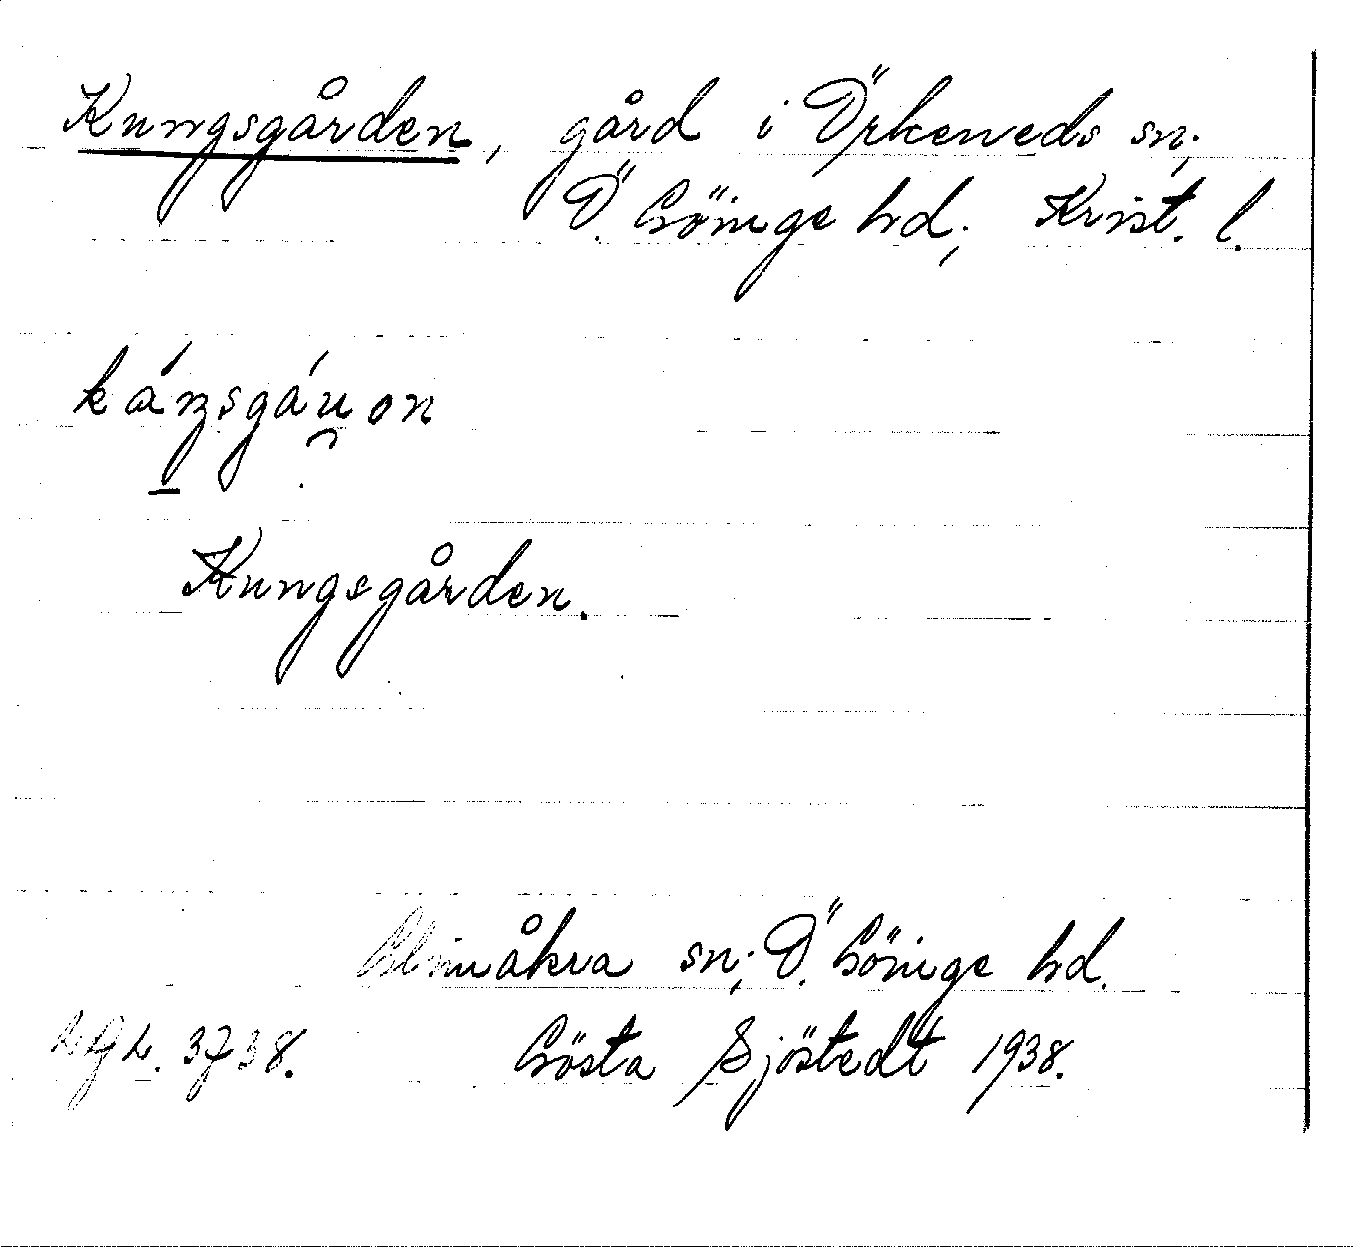 Kungsgården, gård i Örkeneds sn;
Ö. Göinge hd; Krist. l.
Kungsgården.
Glimåkra sn; Ö. Göinge hd.
3738. Gösta Sjöstedt 1938.